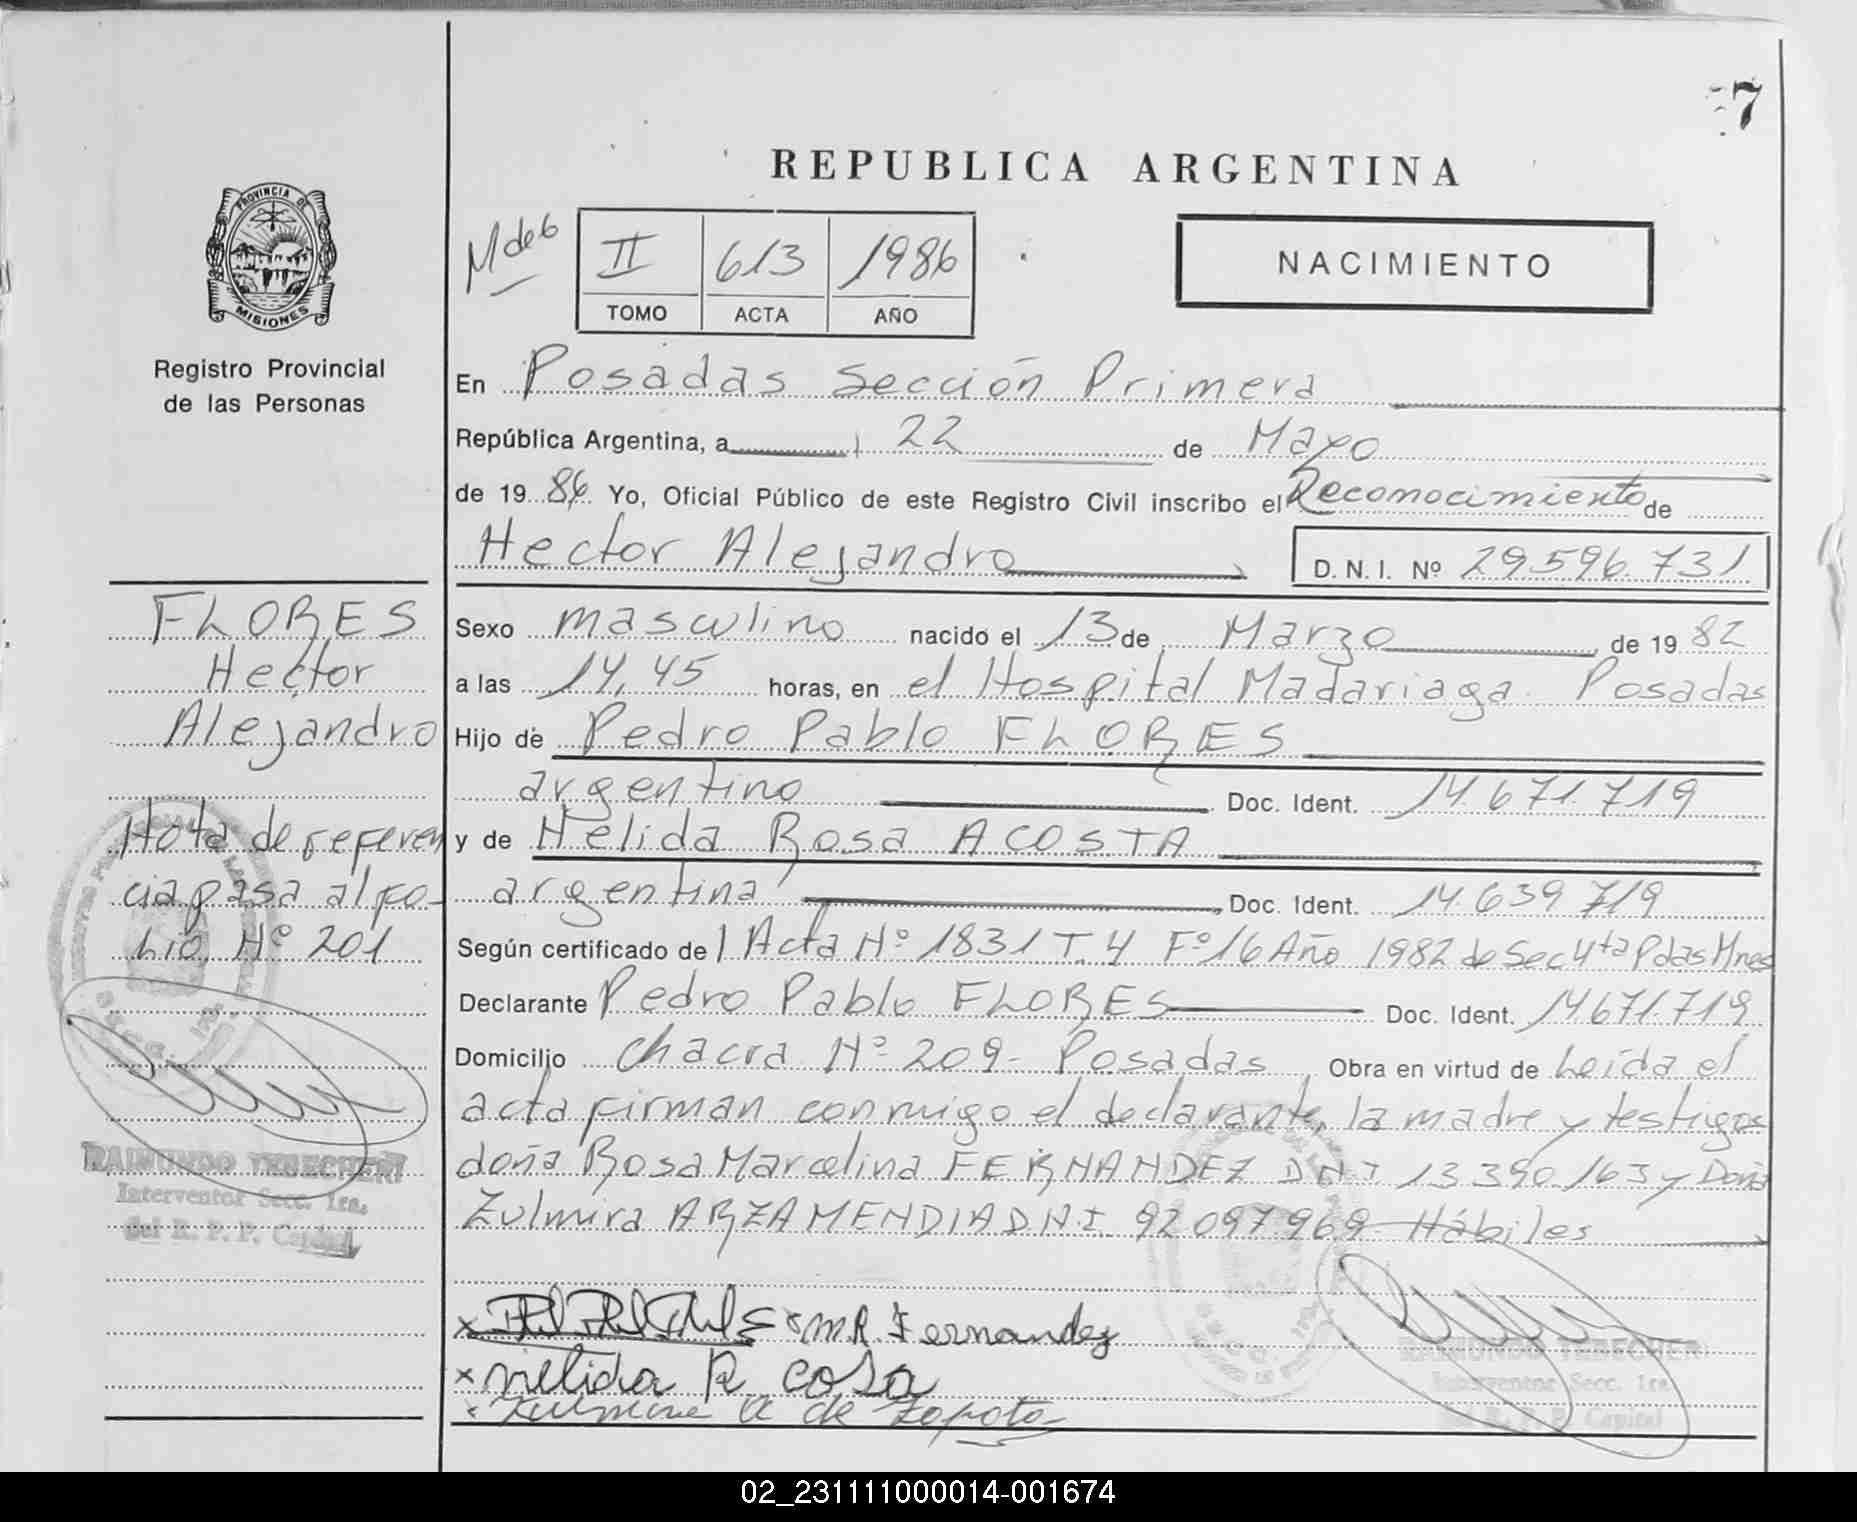 7
REPUBLICA ARGENTINA
PROVINCIA DE
MISIONES
Registro Provincial
de las Personas
M de 6
II 613 1986
TOMO ACTA AÑO
NACIMIENTO
En Posadas Sección Primera
República Argentina, a 22 de Mayo
de 19 86 Yo, Oficial Público de este Registro Civil inscribo el Reconocimiento de
Hector Alejandro D. N. I. Nº 29.596.731
FLORES
Hector
Alejandro
Nota de referen
cia pasa al fo-
lio Nº 201
RAIMUNDO TERECHERI
Interventor Secc. 1ra.
del R. P. P. Capital
Sexo masculino nacido el 13 de Marzo de 19 82
a las 14,45 horas, en el Hospital Madariaga. Posadas
Hijo de Pedro Pablo FLORES
argentino Doc. Ident. 14.671.719
y de Nelida Rosa ACOSTA
argentina Doc. Ident. 14.639 719
Según certificado de Acta Nº 1831 T. 4 Fº 16 Año 1982 de Sec 4ta Pdas Mnes
Declarante Pedro Pablo FLORES Doc. Ident. 14.671.719
Domicilio Chacra Nº 209- Posadas Obra en virtud de Leída el
acta firman conmigo el declarante, la madre y testigos
doña Rosa Marcelina FERNANDEZ D N I 13 390 163 y Doña
Zulmira ARZAMENDIA D.N.I. 92 097 969 Hábiles
x x M R Fernandez
x Nelida R cosa
x a de Zapota
RAIMUNDO TERECHERI
Interventor Secc. 1ra
del R. P. P. Capital
02_231111000014-001674